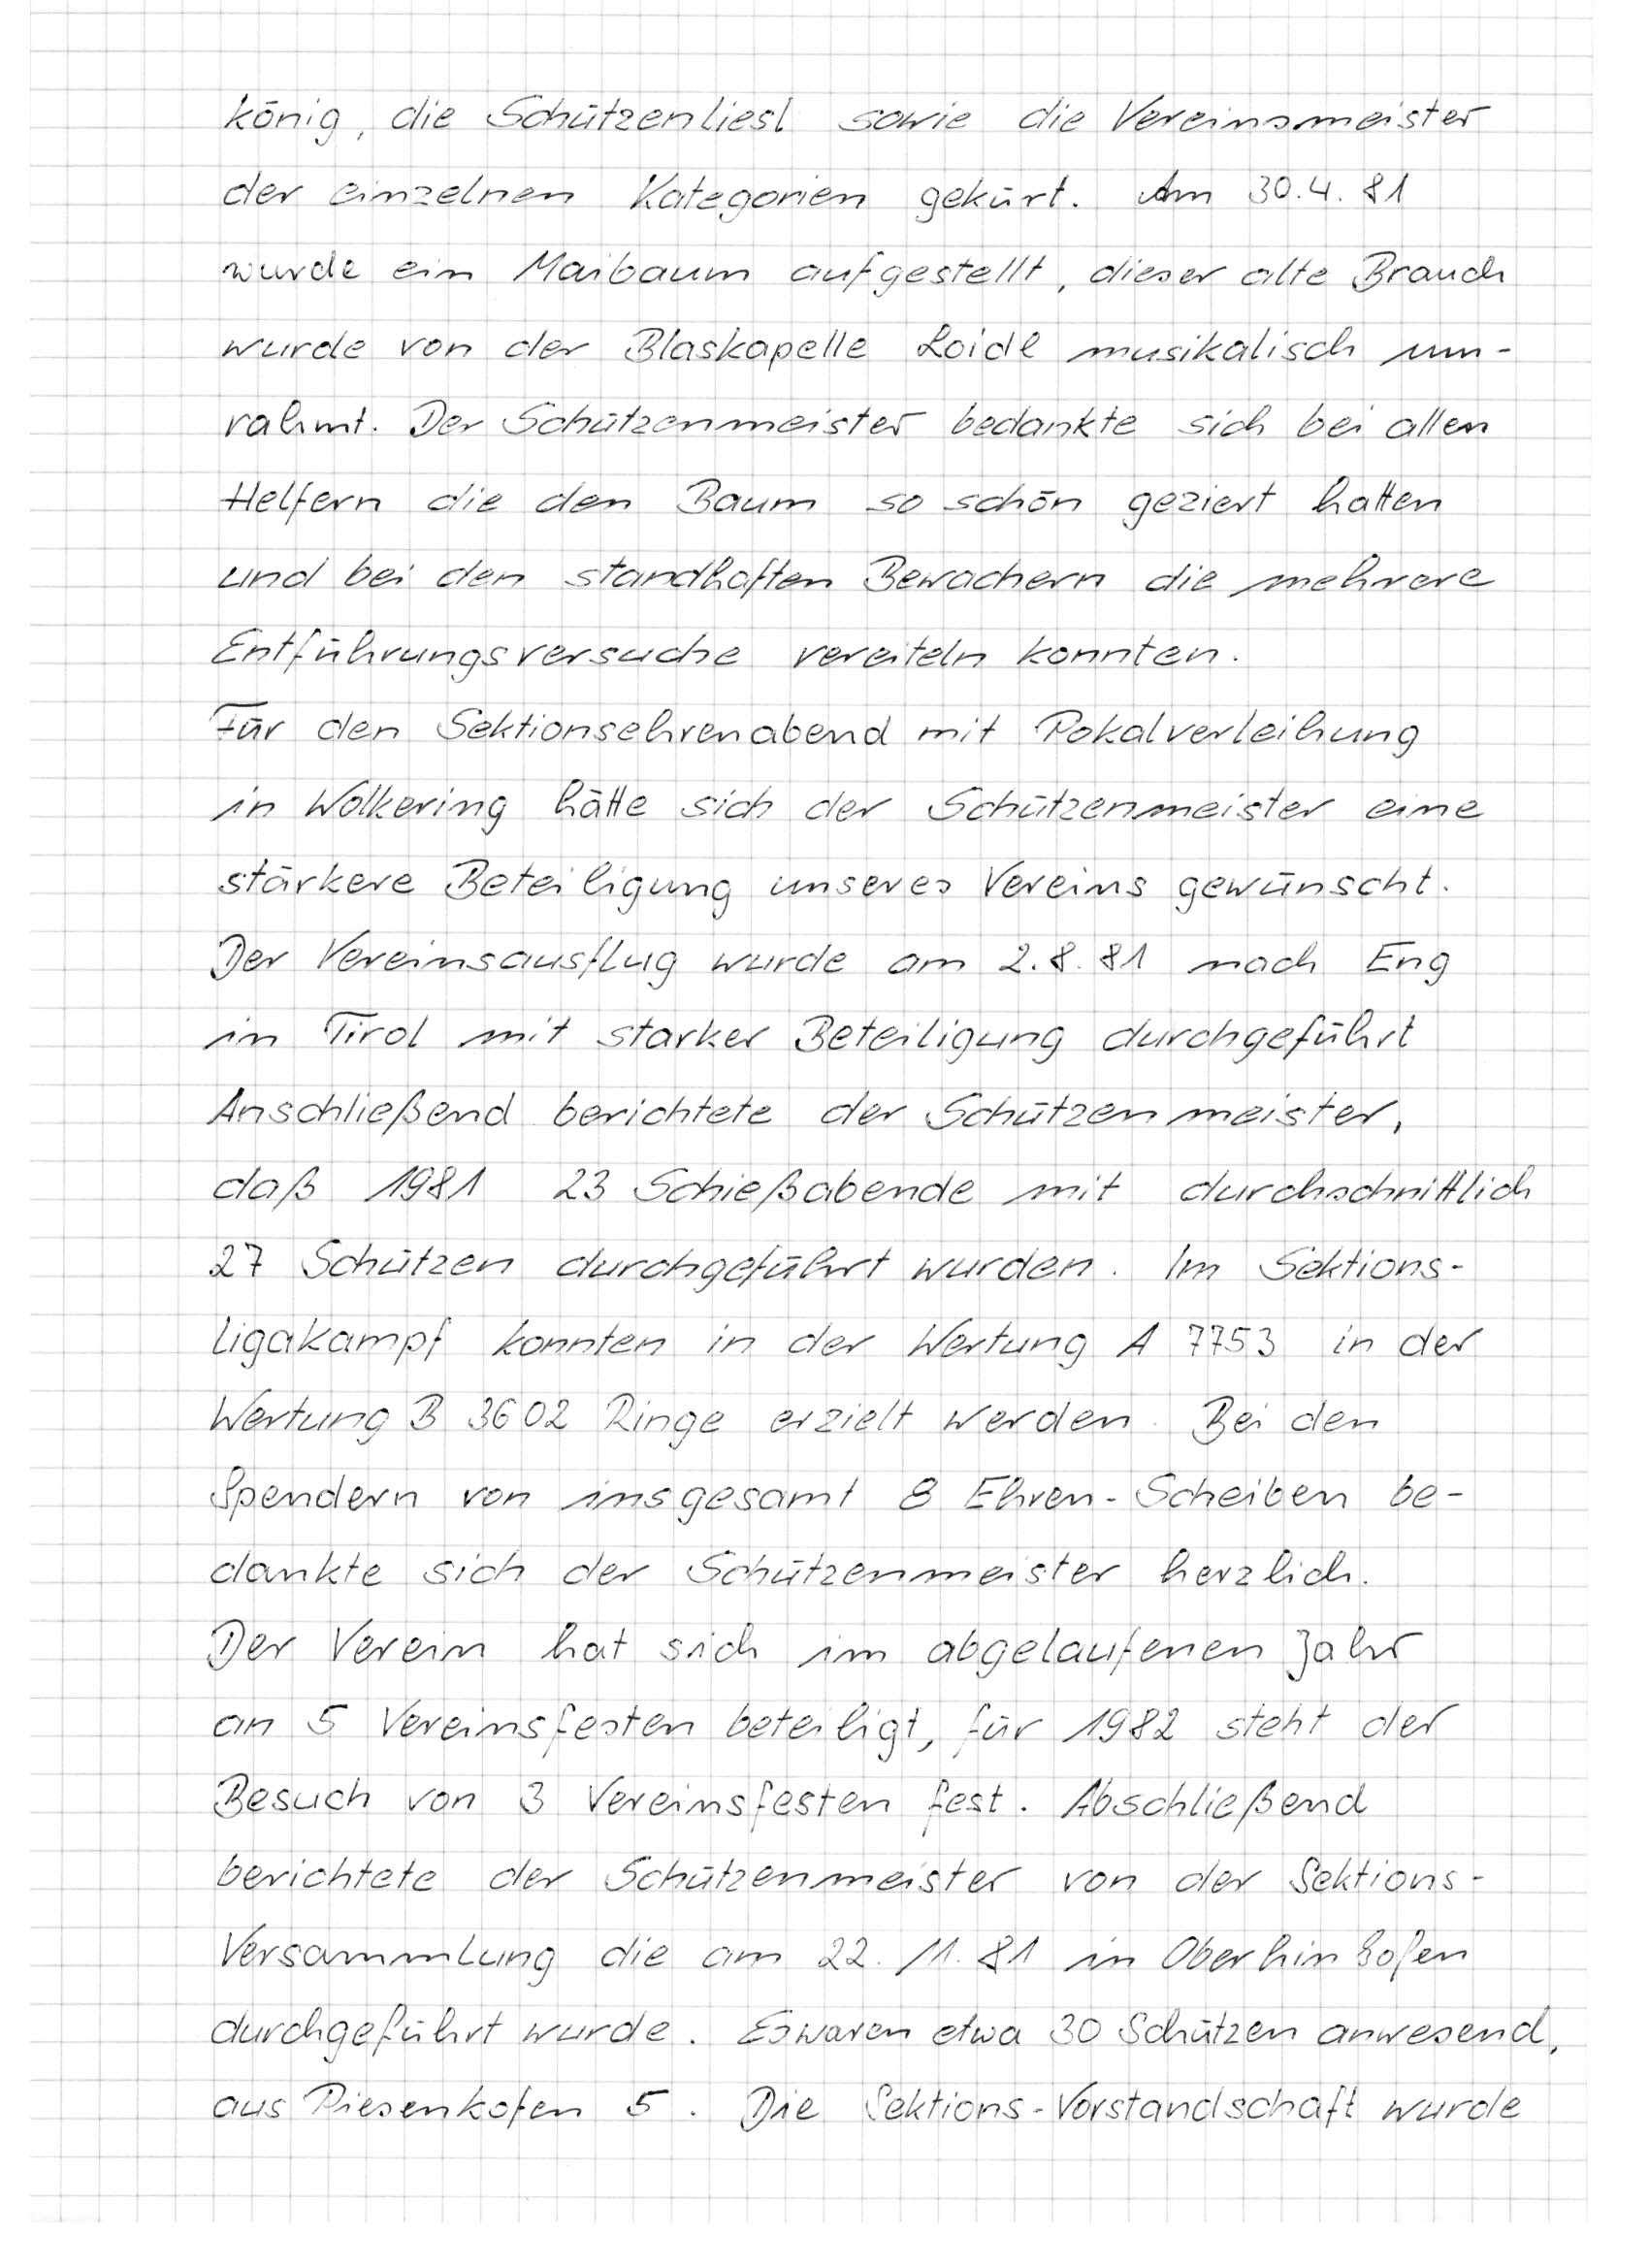 könig, die Schützenliesl sowie die Vereinsmeister
der einzelnen Kategorien gekürt. Am 30.4.81
wurde ein Maibaum aufgestellt, dieser alte Brauch
wurde von der Blaskapelle Loidl musikalisch um-
rahmt. Der Schützenmeister bedankte sich bei allen
Helfern die den Baum so schön geziert hatten
und bei den standhaften Bewachern die mehrere
Entführungsversuche vereiteln konnten.
Für den Sektionsehrenabend mit Pokalverleihung
in Wolkering hätte sich der Schützenmeister eine
stärkere Beteiligung unseres Vereins gewünscht.
Der Vereinsausflug wurde am 2.8.81 nach Eng
in Tirol mit starker Beteiligung durchgeführt
Anschließend berichtete der Schützenmeister,
daß 1981 23 Schießabende mit durchschnittlich
27 Schützen durchgeführt wurden. Im Sektions-
ligakampf konnten in der Wertung A 7753 in der
Wertung B 3602 Ringe erzielt werden. Bei den
Spendern von insgesamt 8 Ehren-Scheiben be-
dankte sich der Schützenmeister herzlich.
Der Verein hat sich im abgelaufenen Jahr
an 5 Vereinsfesten beteiligt, für 1982 steht der
Besuch von 3 Vereinsfesten fest. Abschließend
berichtete der Schützenmeister von der Sektions-
Versammlung die am 22.11.81 in Oberhinkofen
durchgeführt wurde. Es waren etwa 30 Schützen anwesend,
aus Piesenkofen 5. Die Sektions-Vorstandschaft wurde